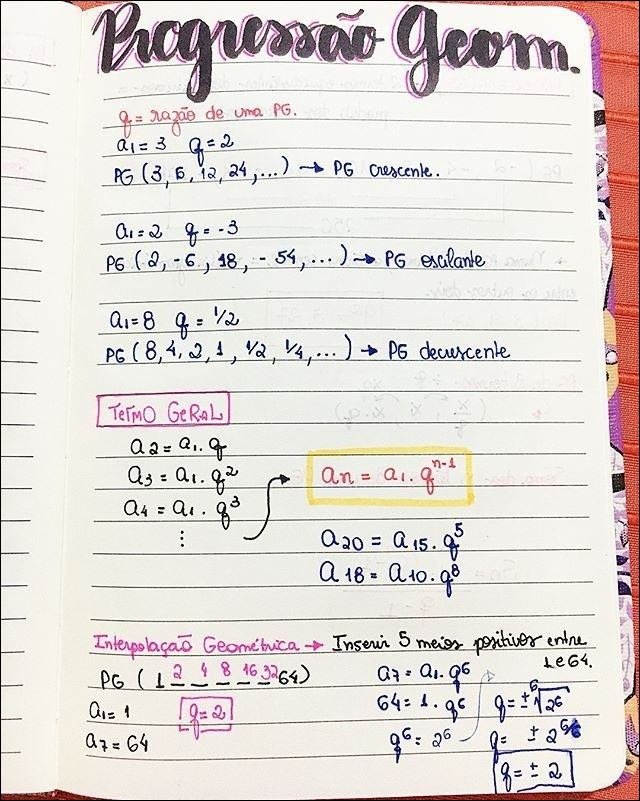 Progressão Geom.
q = razão de uma PG.
a1 = 3 q = 2
PG (3, 6, 12, 24, ...) → PG crescente.
a1 = 2 q = -3
PG (2, -6, 18, -54, ...) → PG oscilante
a1 = 8 q = 1/2
PG (8, 4, 2, 1, 1/2, 1/4, ...) → PG decrescente
TERMO GERAL
a2 = a1 . q
a3 = a1 . q²
an = a1 . q^(n-1)
a4 = a1 . q³
⋮
a20 = a15 . q⁵
a18 = a10 . q⁸
Interpolação Geométrica → Inserir 5 meios positivos entre
1 e 64.
PG ( 1 2 4 8 16 32 64)
a1 = 1
q = 2
a7 = 64
a7 = a1 . q⁶
64 = 1 . q⁶
q⁶ = 2⁶
q = ± ⁶√2⁶
q = ± 2^(6/6)
q = ± 2